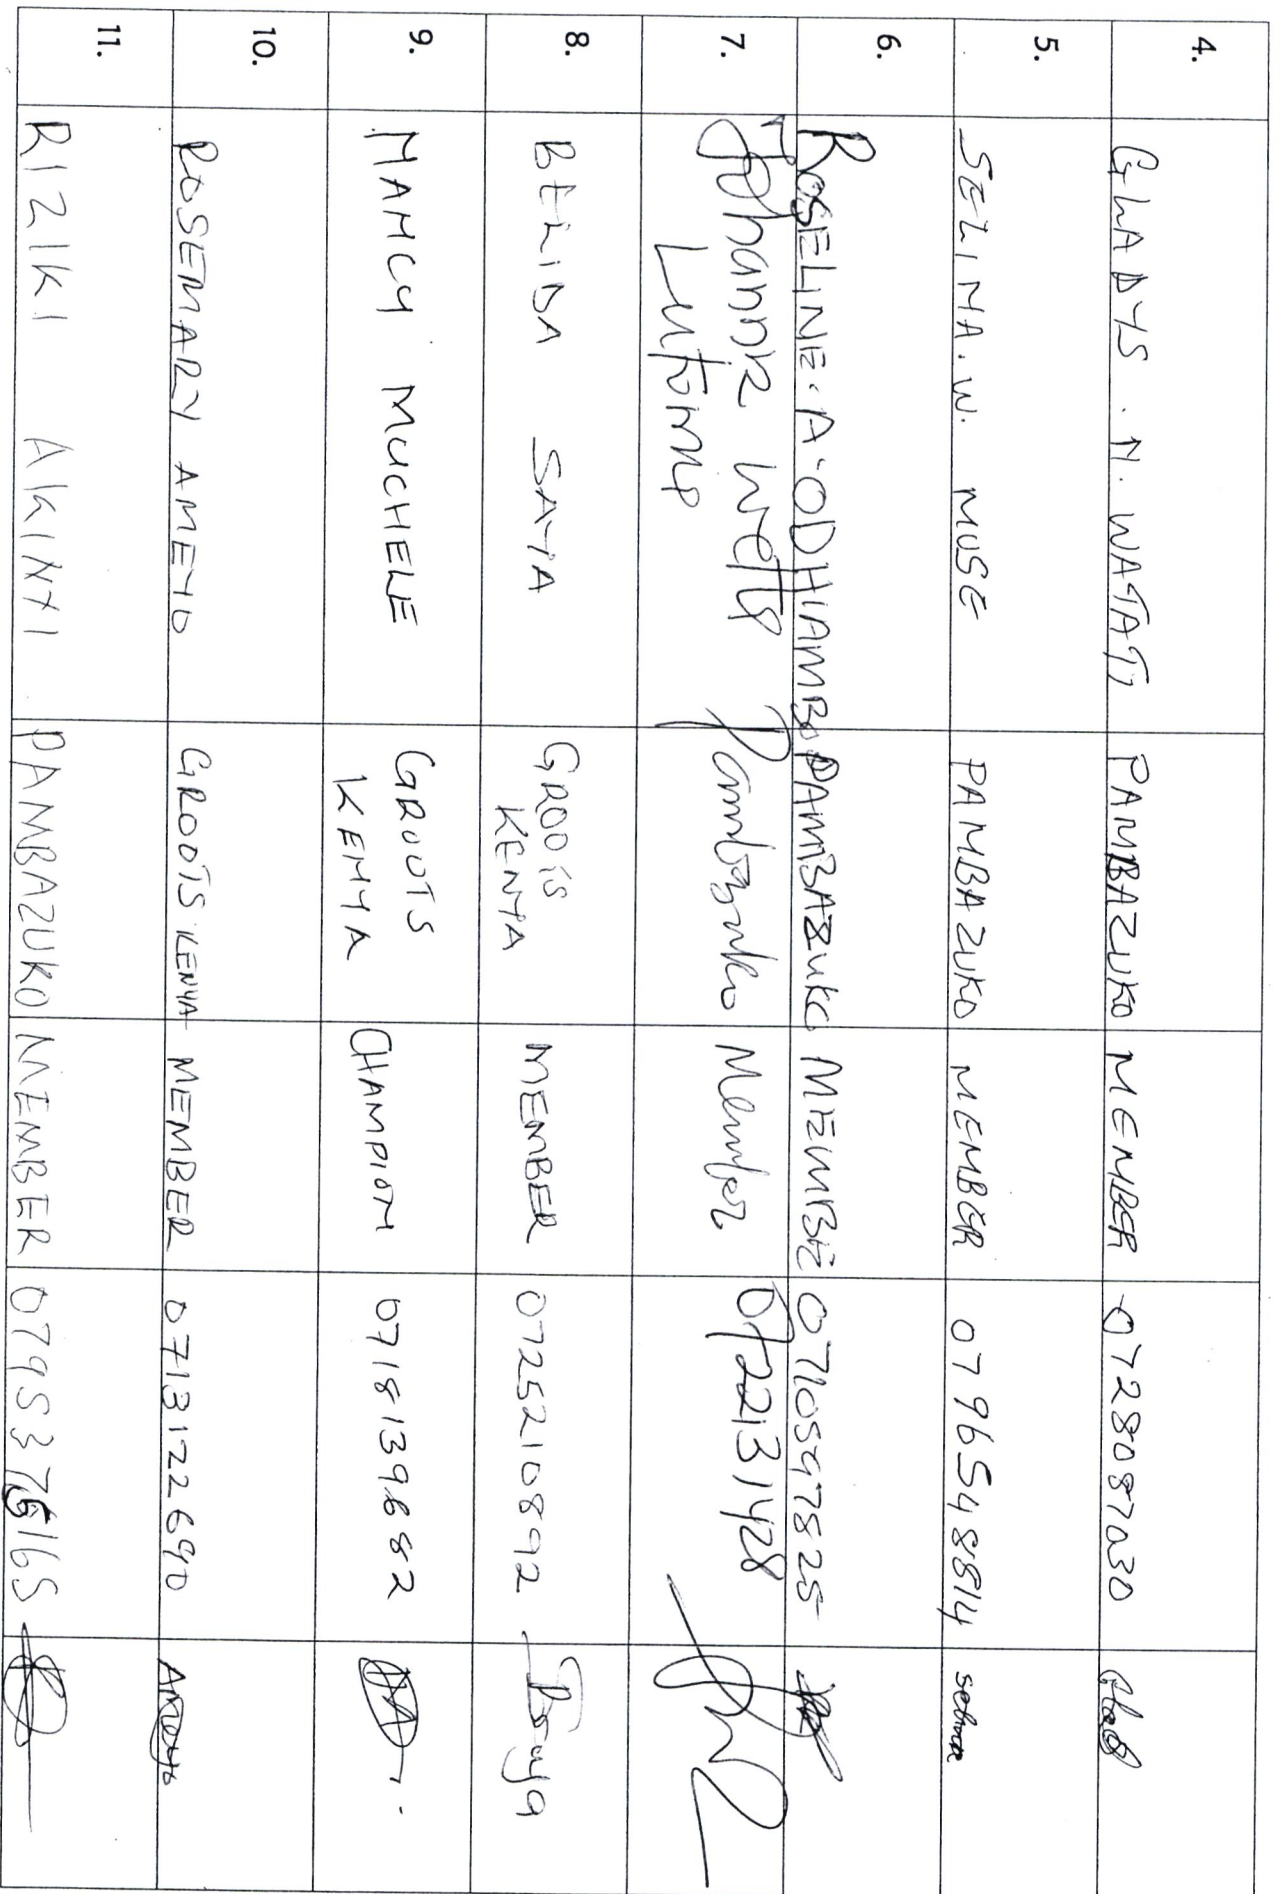 4. GLADYS . N. WATATI PAMBAZUKO MEMBER 0728087030
5. SELINA. W. MUSE PAMBAZUKO MEMBER 0796548814 selina
6. ROSELINE. A. ODHIAMBO PAMBAZUKO MEMBE 0710597825
7. Johannr Lutomo Pambazuko Member 0722131428
8. BELIDA SAYA GROOTS KENYA MEMBER 0725210892 Bsaya
9. NANCY MUCHELE GROOTS KENYA CHAMPION 0718139682
10. ROSEMARY AMEYO GROOTS KENYA MEMBER 0713122690 Ameyo
11. RIZIKI AKINYI PAMBAZUKO MEMBER